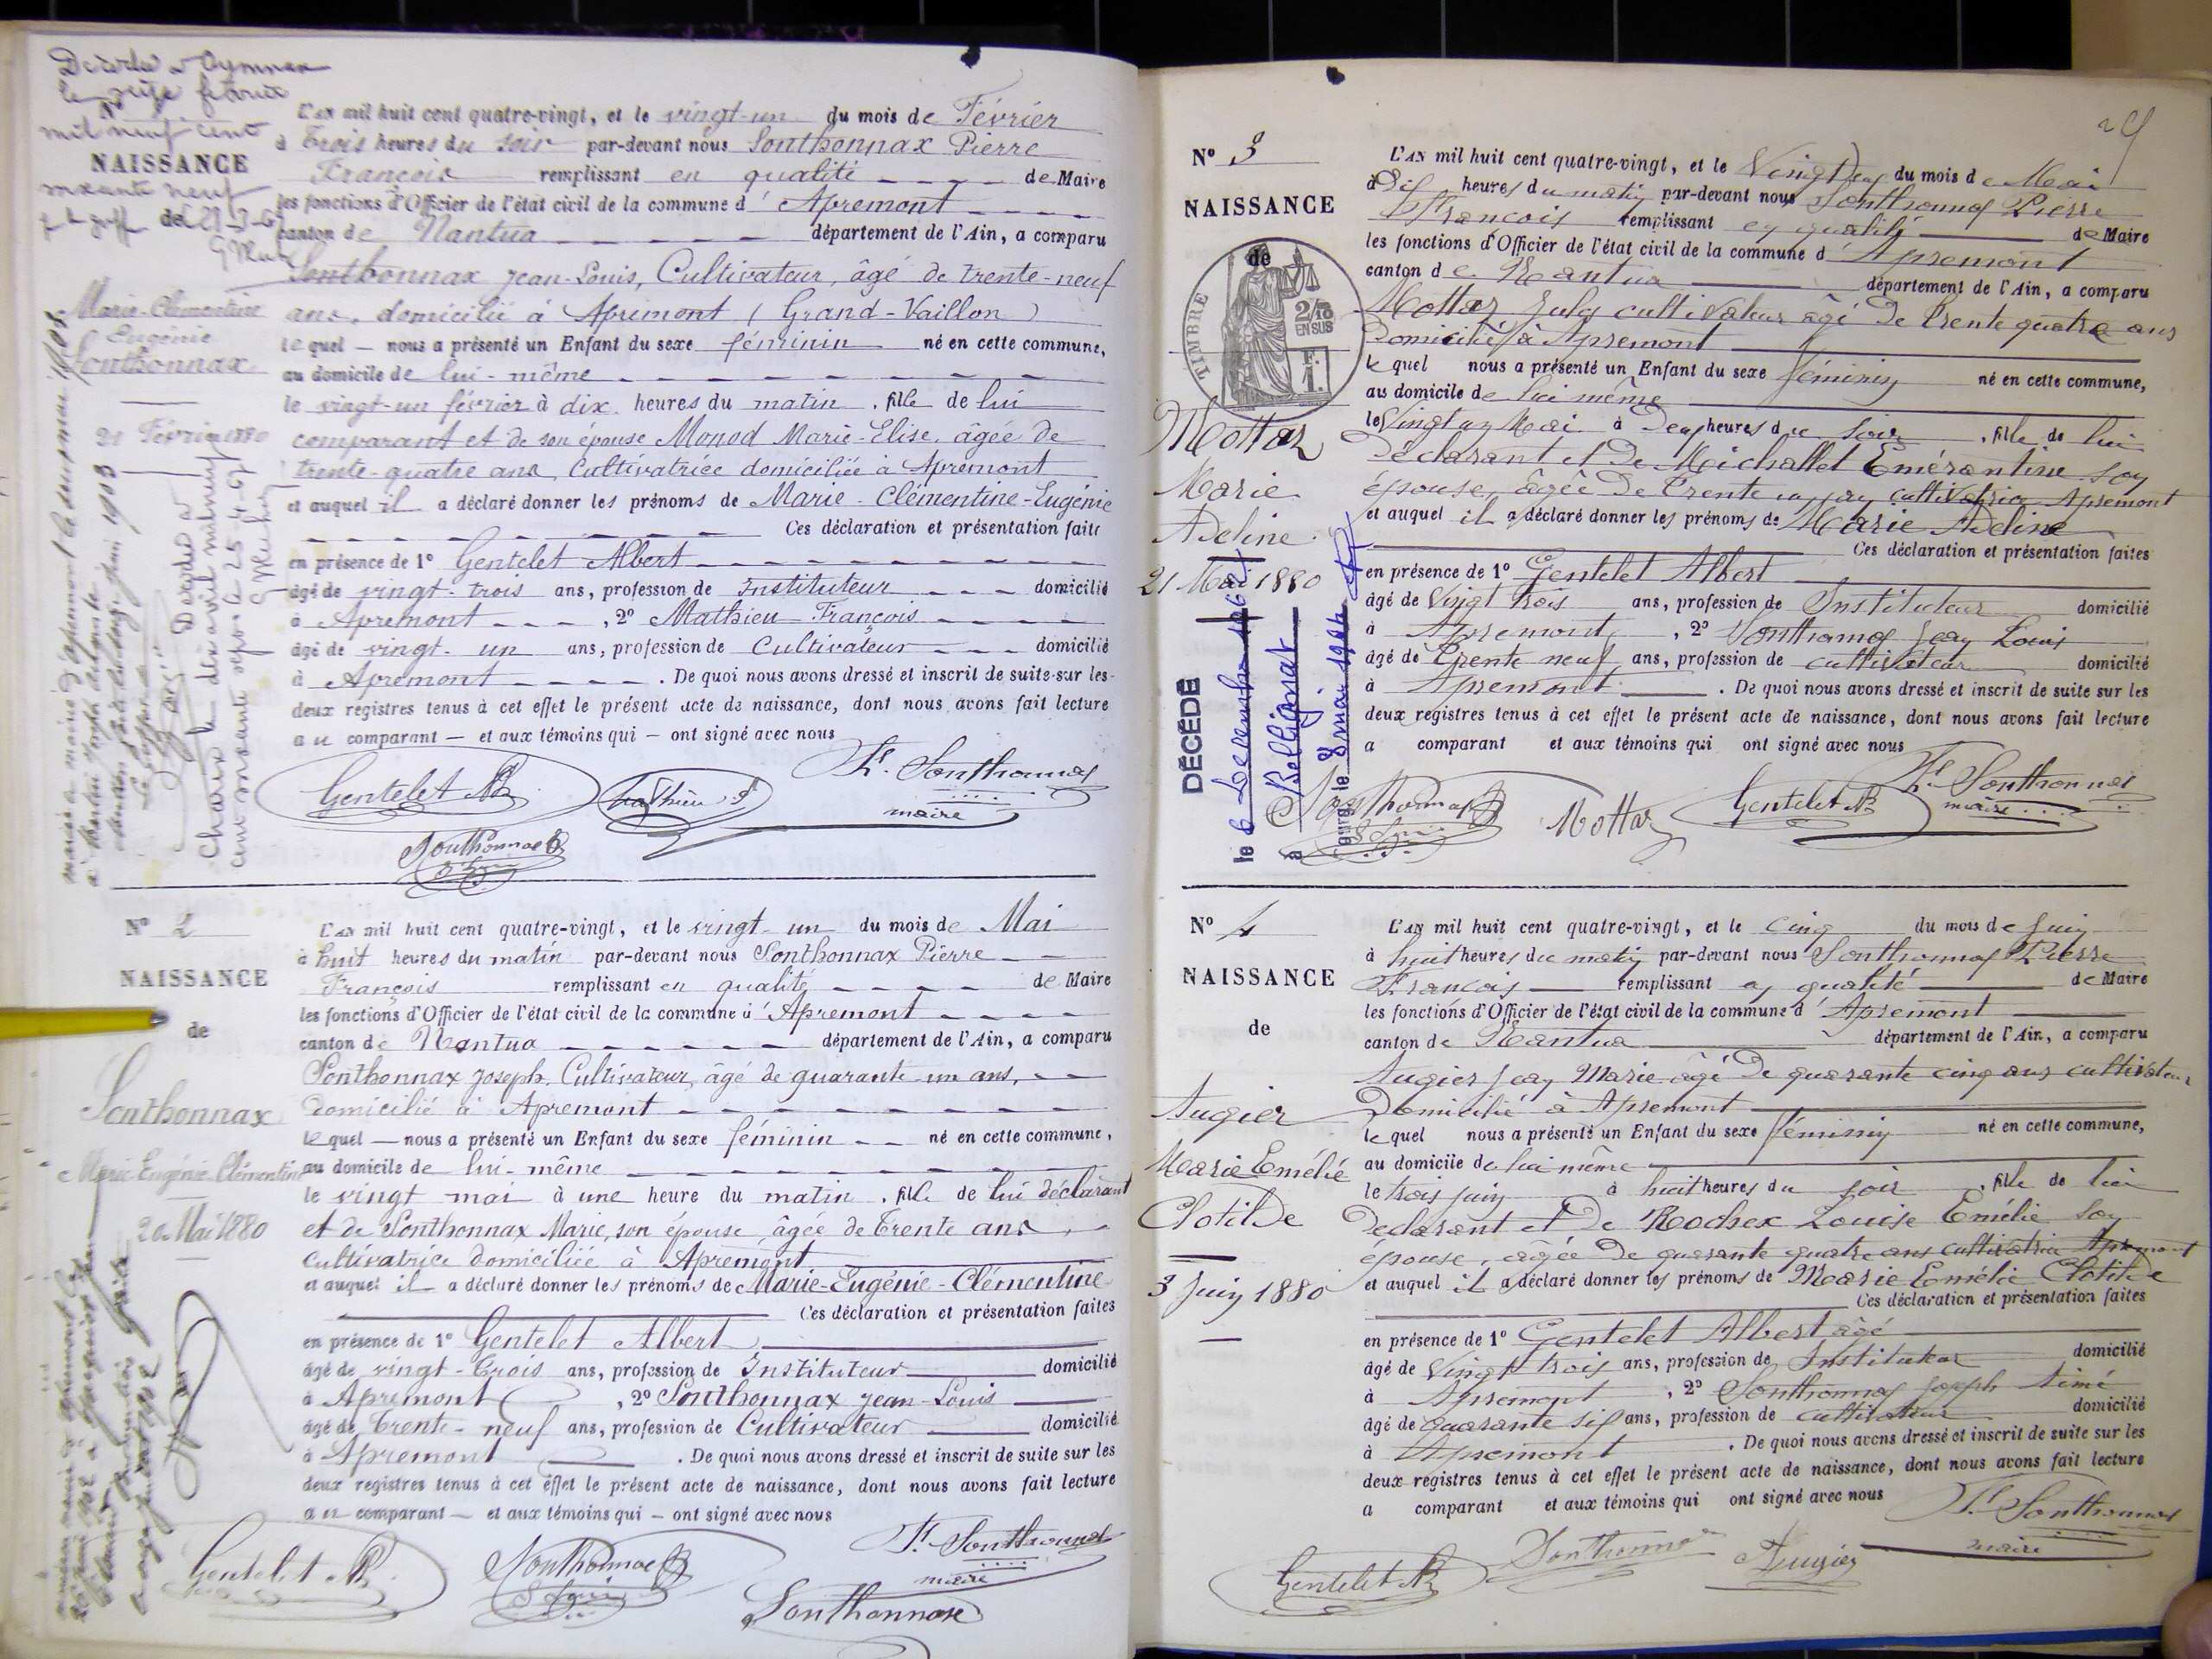 Nº
NAISSANCE
de
Marie-Clémentine
Eugénie
Sonthonnax
21 Février 1880
L'AN mil huit cent quatre-vingt, et le vingt-un du mois de Février
à trois heures du soir par-devant nous Sonthonnax Pierre
François remplissant en qualité de Maire
les fonctions d'Officier de l'état civil de la commune d'Apremont
canton de Nantua département de l'Ain, a comparu
Sonthonnax Jean-Louis, Cultivateur, âgé de trente-neuf
ans, domicilié à Apremont (Grand-Vaillon)
lequel nous a présenté un Enfant du sexe féminin né en cette commune,
au domicile de lui-même
le vingt-un février à dix heures du matin, fille de lui
comparant et de son épouse Monod Marie-Elise, âgée de
trente-quatre ans, Cultivatrice domiciliée à Apremont
et auquel il a déclaré donner les prénoms de Marie-Clémentine-Eugénie
Ces déclaration et présentation faite
en présence de 1º Gentelet Albert
âgé de vingt-trois ans, profession de Instituteur domicilié
à Apremont, 2º Mathieu François
âgé de vingt-un ans, profession de Cultivateur domicilié
à Apremont. De quoi nous avons dressé et inscrit de suite sur les
deux registres tenus à cet effet le présent acte de naissance, dont nous avons fait lecture
au comparant et aux témoins qui ont signé avec nous
Gentelet Mathieu F. Sonthonnax
maire
Sonthonnax
Nº 2
NAISSANCE
de
Sonthonnax
Marie-Eugénie-Clémentine
20 Mai 1880
L'AN mil huit cent quatre-vingt, et le vingt-un du mois de Mai
à huit heures du matin par-devant nous Sonthonnax Pierre
François remplissant en qualité de Maire
les fonctions d'Officier de l'état civil de la commune d'Apremont
canton de Nantua département de l'Ain, a comparu
Sonthonnax Joseph, Cultivateur, âgé de quarante-un ans,
domicilié à Apremont
lequel nous a présenté un Enfant du sexe féminin né en cette commune,
au domicile de lui-même
le vingt mai à une heure du matin, fille de lui déclarant
et de Sonthonnax Marie, son épouse, âgée de trente ans,
cultivatrice domiciliée à Apremont
et auquel il a déclaré donner les prénoms de Marie-Eugénie-Clémentine
Ces déclaration et présentation faites
en présence de 1º Gentelet Albert
âgé de vingt-trois ans, profession de Instituteur domicilié
à Apremont, 2º Sonthonnax Jean-Louis
âgé de trente-neuf ans, profession de Cultivateur domicilié
à Apremont. De quoi nous avons dressé et inscrit de suite sur les
deux registres tenus à cet effet le présent acte de naissance, dont nous avons fait lecture
au comparant et aux témoins qui ont signé avec nous
Gentelet Sonthonnax F. Sonthonnax
maire
Sonthonnax
29
Nº 3
NAISSANCE
de
TIMBRE
2/10
EN SUS
F.
1.
Mottaz
Marie
Adeline
21 Mai 1880
DÉCÉDÉ
le 6 Decembre
à Bellignat
L'AN mil huit cent quatre-vingt, et le Vingt deux du mois de Mai
à Dix heures du matin par-devant nous Sonthonnax Pierre
François remplissant en qualité de Maire
les fonctions d'Officier de l'état civil de la commune d'Apremont
canton de Nantua département de l'Ain, a comparu
Mottaz Jules cultivateur âgé de trente quatre ans
Domicilié à Apremont
lequel nous a présenté un Enfant du sexe féminin né en cette commune,
au domicile de lui même
le Vingt un Mai à Deux heures du soir, fille de lui
déclarant et de Michallet Emérantine son
épouse, âgée de trente un an cultivatrice Apremont
et auquel il a déclaré donner les prénoms de Marie Adeline
Ces déclaration et présentation faites
en présence de 1º Gentelet Albert
âgé de Vingt trois ans, profession de Instituteur domicilié
à Apremont, 2º Sonthonnax Jean Louis
âgé de Trente neuf ans, profession de cultivateur domicilié
à Apremont. De quoi nous avons dressé et inscrit de suite sur les
deux registres tenus à cet effet le présent acte de naissance, dont nous avons fait lecture
a comparant et aux témoins qui ont signé avec nous
Sonthonnax Mottaz Gentelet F. Sonthonnax
maire
Nº 4
NAISSANCE
de
Augier
Marie Emélie
Clotilde
3 Juin 1880
L'AN mil huit cent quatre-vingt, et le cinq du mois de Juin
à huit heures du matin par-devant nous Sonthonnax Pierre
François remplissant en qualité de Maire
les fonctions d'Officier de l'état civil de la commune d'Apremont
canton de Nantua département de l'Ain, a comparu
Augier Jean Marie âgé de quarante cinq ans cultivateur
Domicilié à Apremont
lequel nous a présenté un Enfant du sexe féminin né en cette commune,
au domicile de lui même
le trois juin à huit heures du soir, fille de lui
déclarant et de Rochex Louise Emélie son
épouse, âgée de quarante quatre ans cultivatrice Apremont
et auquel il a déclaré donner les prénoms de Marie Emélie Clotilde
Ces déclaration et présentation faites
en présence de 1º Gentelet Albert âgé
âgé de Vingt trois ans, profession de Instituteur domicilié
à Apremont, 2º Sonthonnax Joseph Aimé
âgé de quarante six ans, profession de cultivateur domicilié
à Apremont. De quoi nous avons dressé et inscrit de suite sur les
deux registres tenus à cet effet le présent acte de naissance, dont nous avons fait lecture
a comparant et aux témoins qui ont signé avec nous
Gentelet Sonthonnax Augier F. Sonthonnax
maire